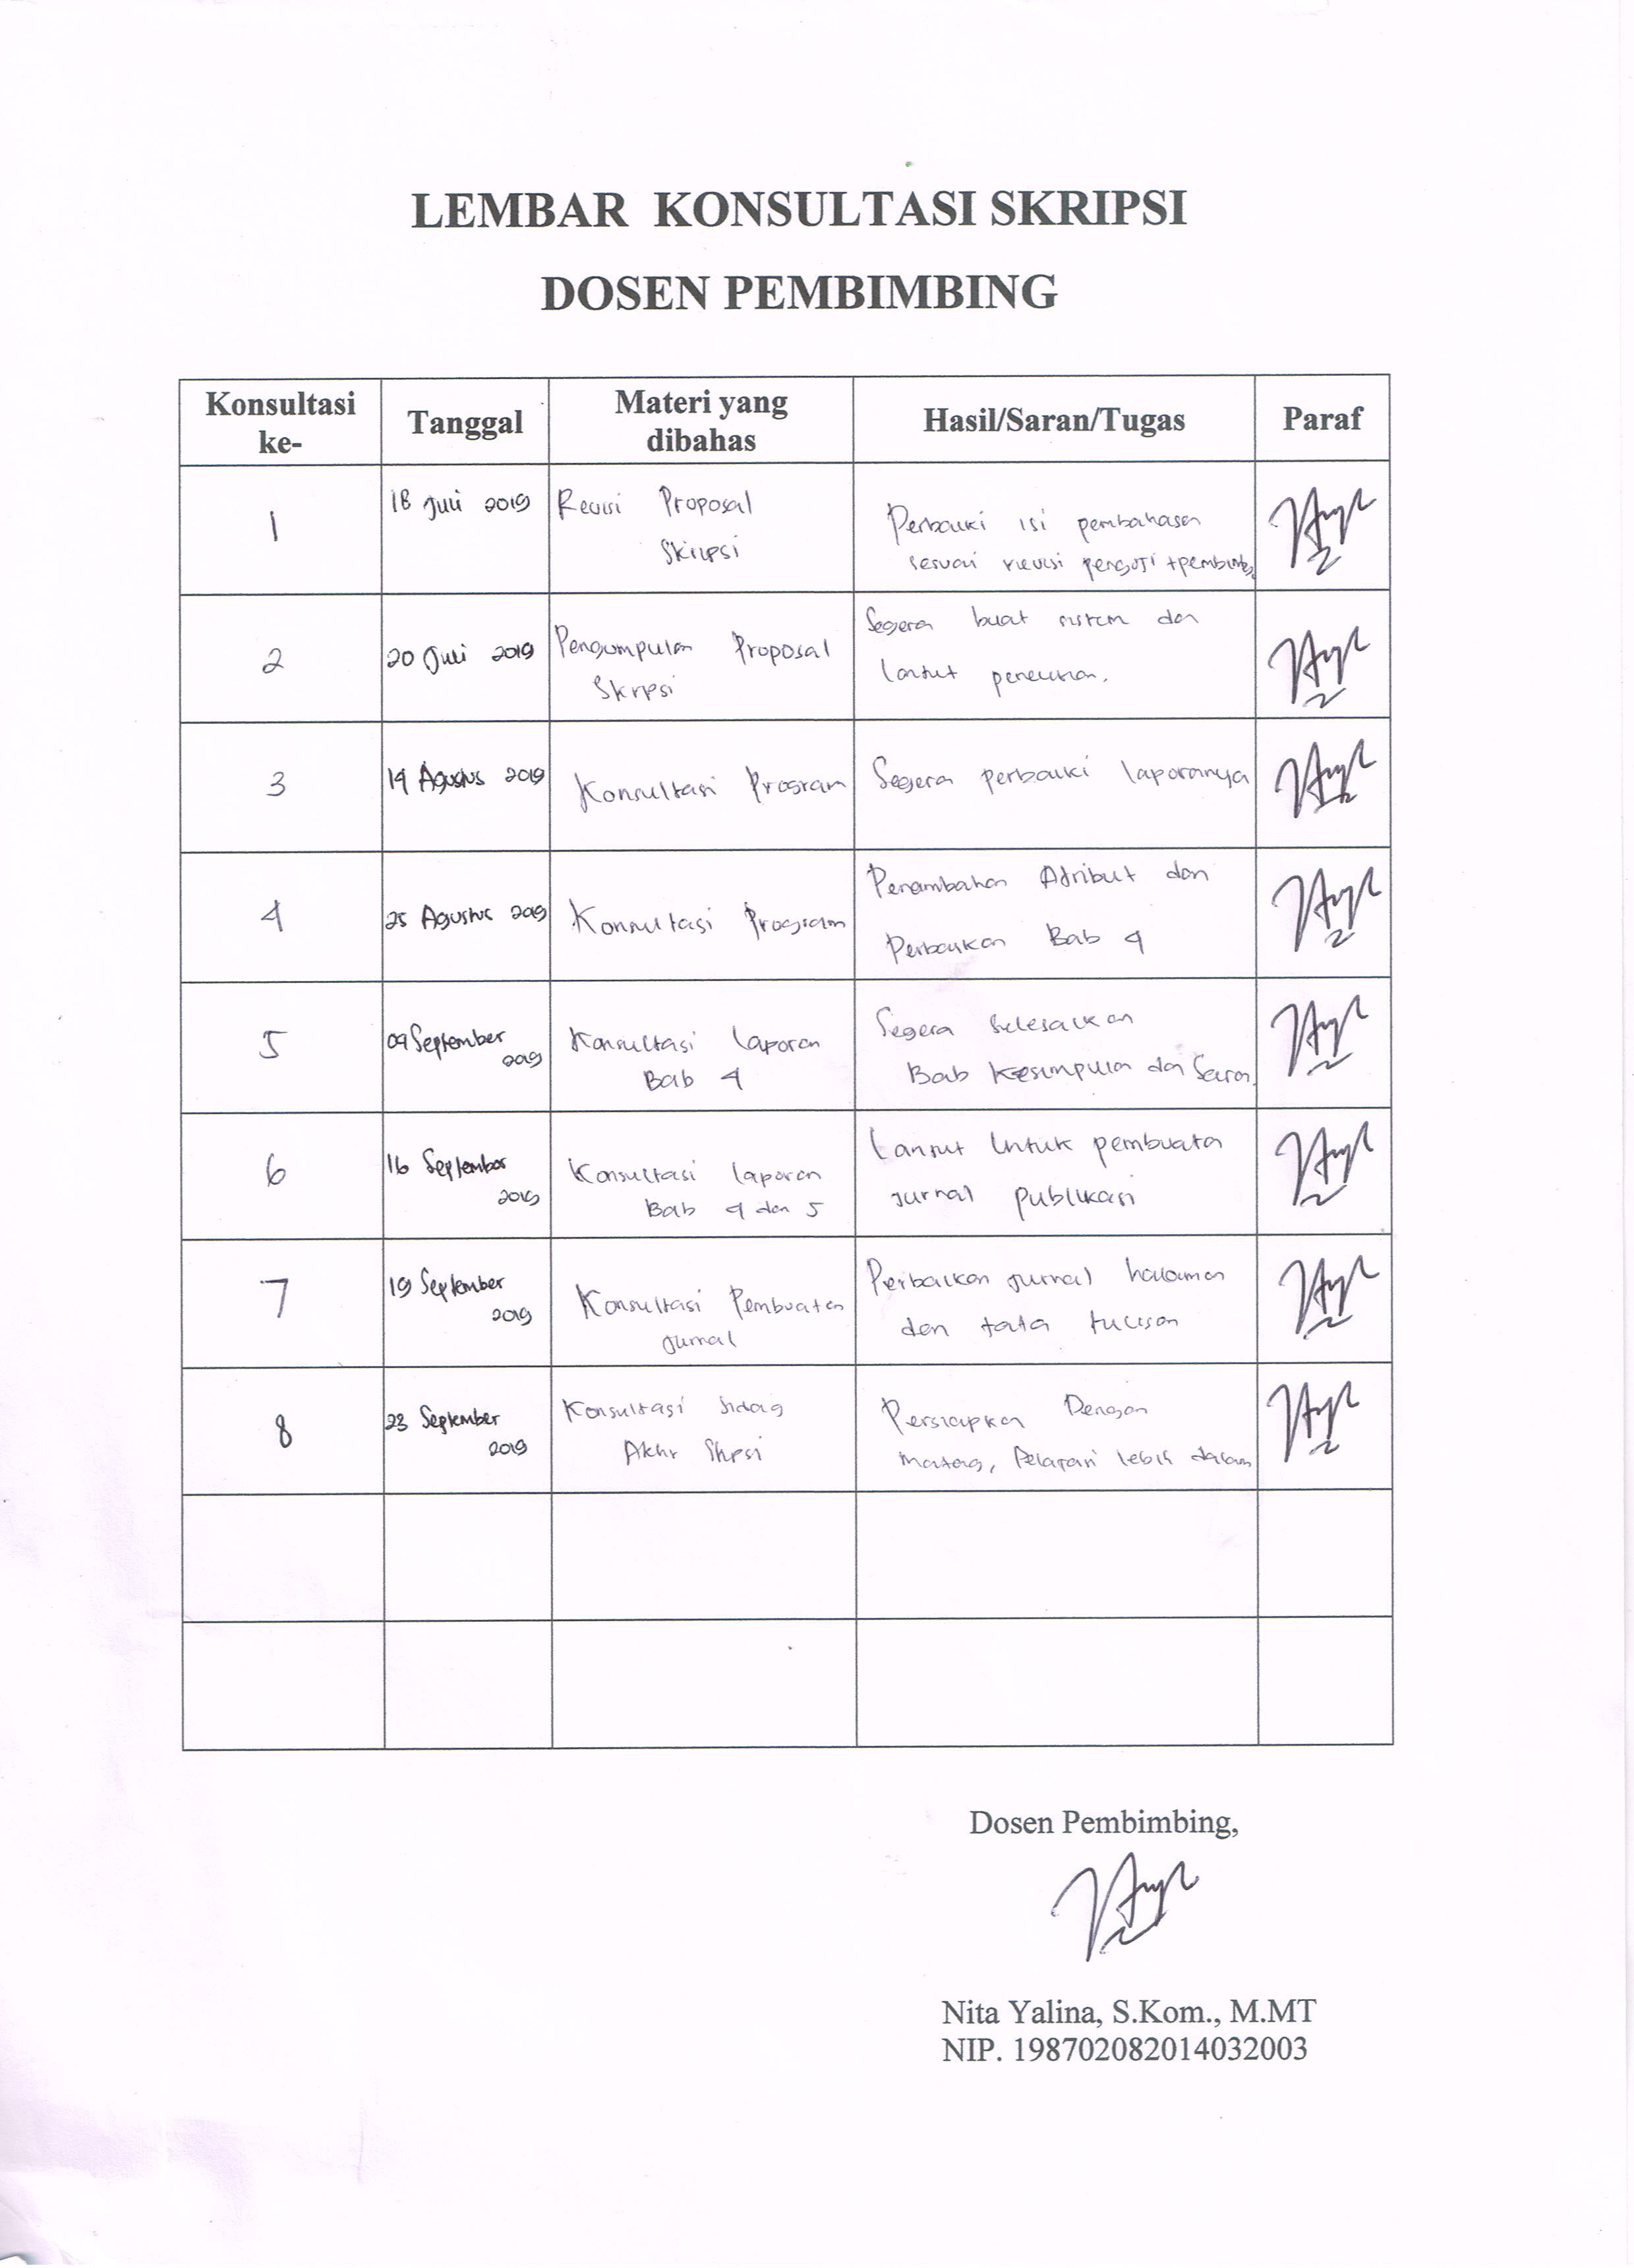 LEMBAR KONSULTASI SKRIPSI
DOSEN PEMBIMBING
Konsultasi ke- Tanggal Materi yang dibahas Hasil/Saran/Tugas Paraf
1 18 Juli 2019 Revisi Proposal Perbaiki isi pembahasan
Skripsi sesuai revisi penguji + pembimbing
2 20 Juli 2019 Pengumpulan Proposal Segera buat sistem dan
Skripsi lanjut penelitian.
3 19 Agustus 2019 Konsultasi Program Segera perbaiki laporannya
4 25 Agustus 2019 Konsultasi Program Penambahan Atribut dan
Perbaikan Bab 4
5 09 September Konsultasi laporan Segera selesaikan
2019 Bab 4 Bab Kesimpulan dan Saran.
6 16 September Konsultasi laporan Lanjut Untuk pembuatan
2019 Bab 4 dan 5 jurnal publikasi
7 19 September Konsultasi Pembuatan Perbaikan jurnal halaman
2019 jurnal dan tata tulisan
8 23 September Konsultasi Sidang Persiapkan Dengan
2019 Akhir Skripsi matang, Pelajari lebih dalam
Dosen Pembimbing,
Nita Yalina, S.Kom., M.MT
NIP. 198702082014032003